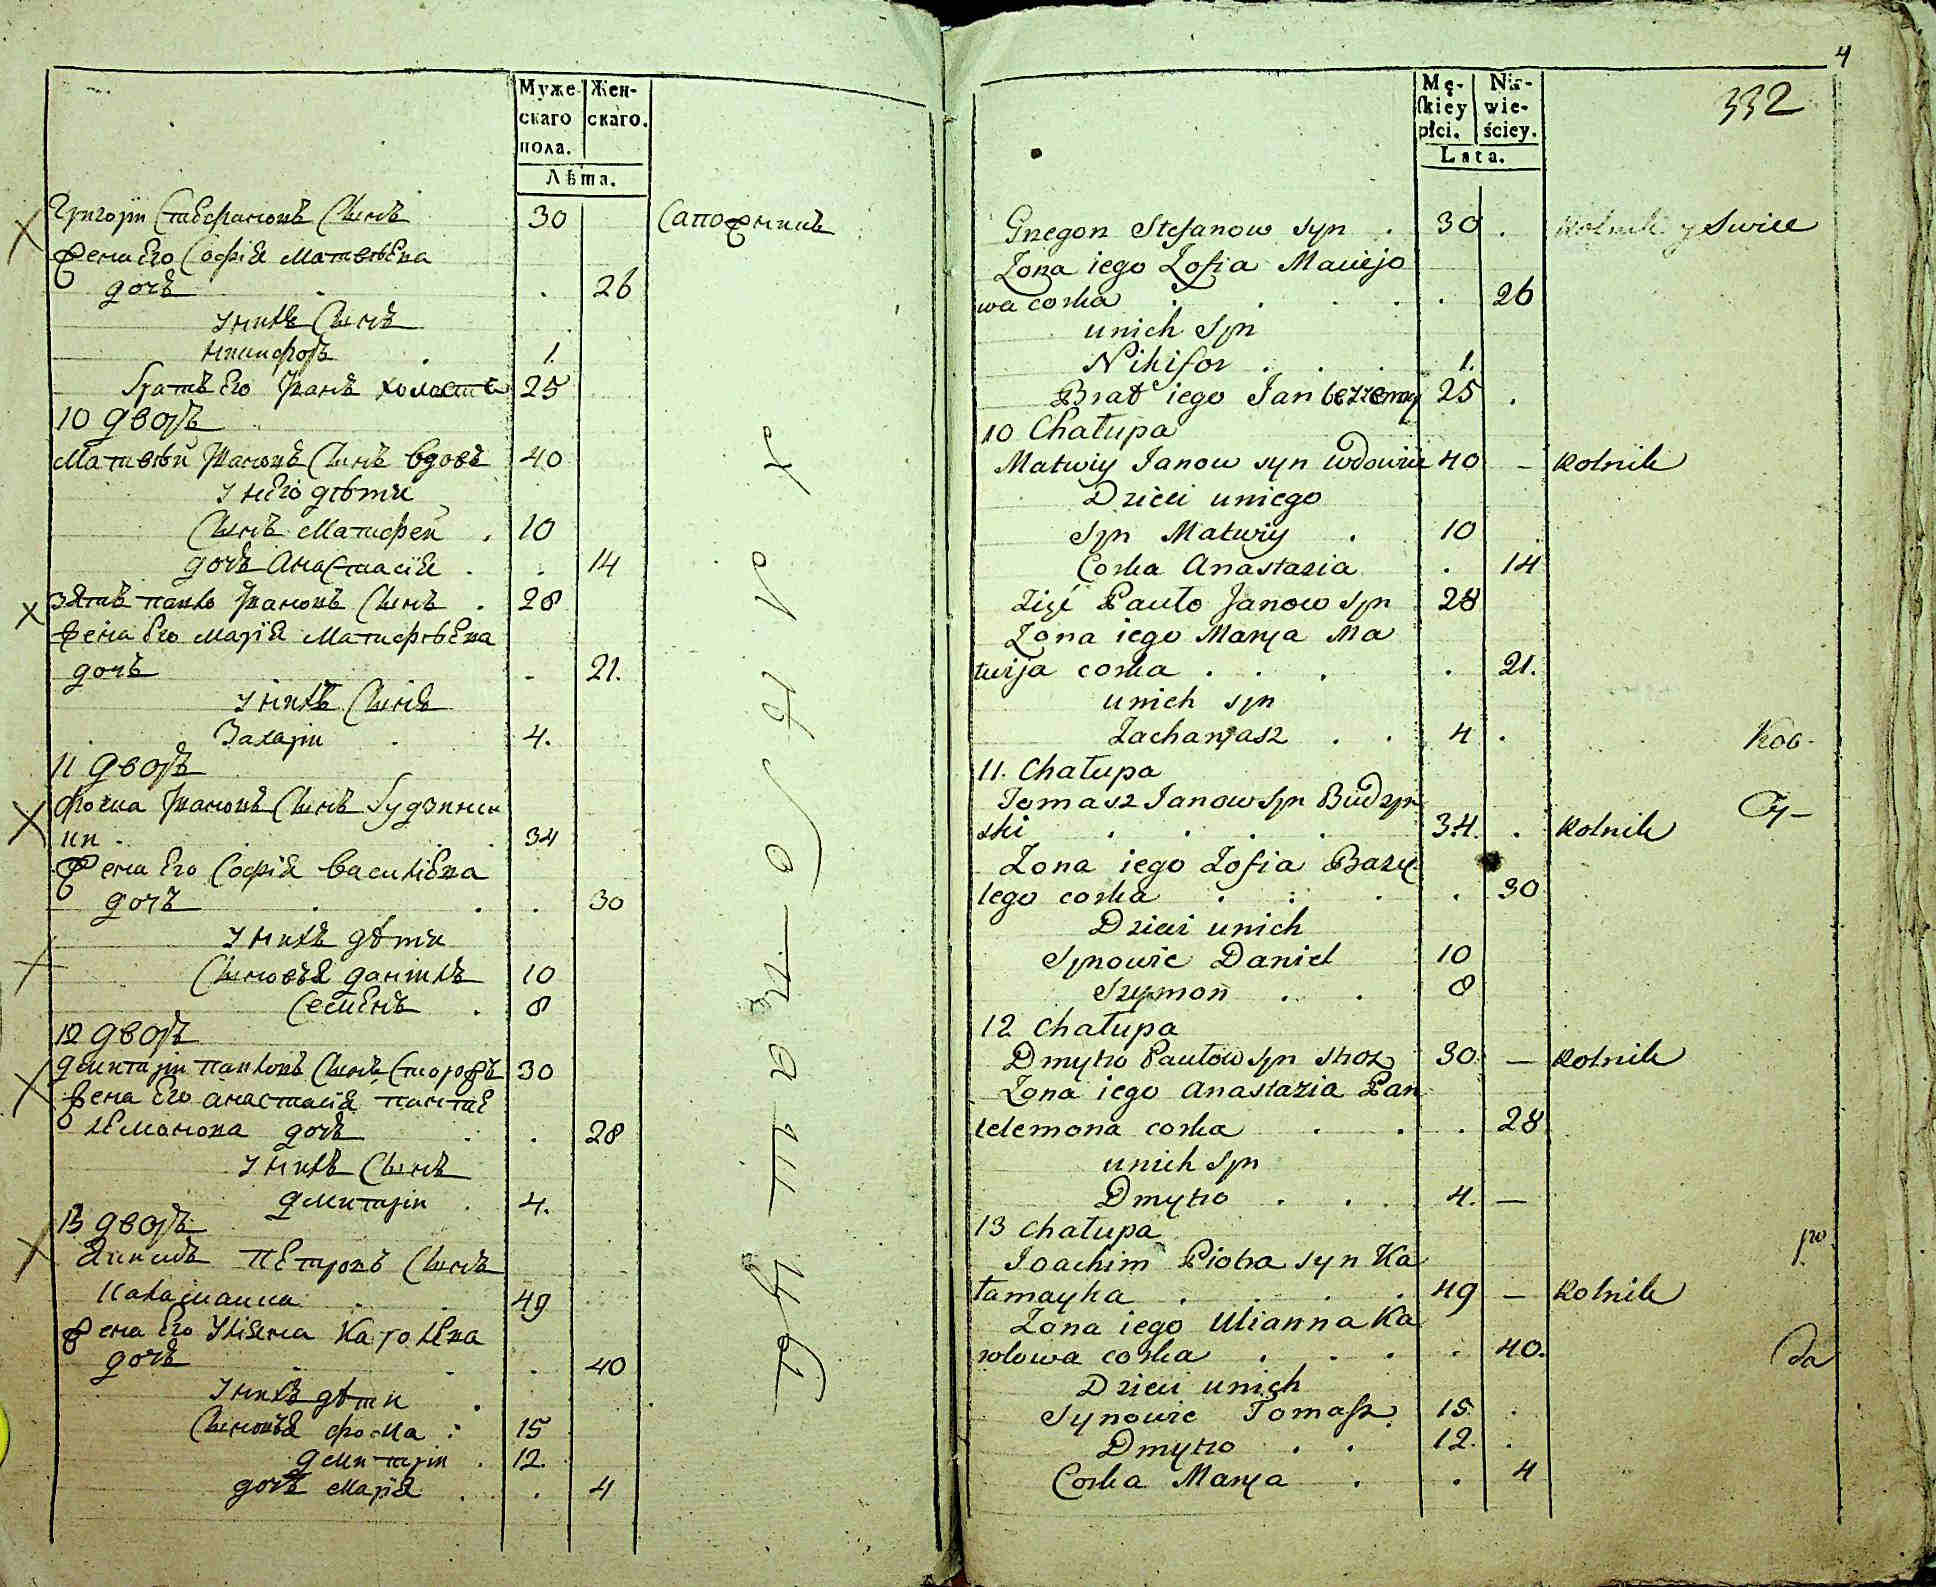 Муже- Жен-
скаго скаго.
пола.
Лѣта.
Григорiи Стефановъ Сынъ 30 Сапожникъ
Жена Его Софiя Матвѣева
дочъ . 26
У нихъ Сынъ
Никифоръ . 1.
братъ Его Иванъ холостъ 25
10 дворъ
Матвѣй Ивановъ Сынъ вдовъ 40
У него дѣти
Сынъ Матифей . 10
дочъ Анастасiя . . 14
Зятъ павло Ивановъ Сынъ . 28
Жена Его Марiя Матифѣева
дочъ . 21.
У нихъ Сынъ
Захарiи . 4.
11 дворъ
Фома Ивановъ Сынъ будзинс
ки . 34
Жена Его Софiя василiева
дочъ . . . 30
У нихъ дѣти
Сыновъя данiилъ 10
Семенъ . 8
12 дворъ
Дмитрiи павловъ Сынъ Сторожъ 30
Жена Его анастасiя панте
лемонова дочъ . . 28
У нихъ Сынъ
Дмитрiи . 4.
13 дворъ
Якимъ Петровъ Сынъ
Каламайка 49
Жена Его Улiяна Каролева
дочъ . 40
У нихъ дѣти .
Сыновъя фома : 15
дмитрiи . 12.
дочъ Марiя . . 4
4
332
Mę- Nie-
ſkiey wie-
płci. ściey.
Lata.
Gregori Stefanow syn . 30 . Rolnik y Swiec
Zona iego Zofia Maciejo
wa corka . . . . . 26
unich Syn
Nikifor . . . 1.
Brat iego Jan bezzenny 25 .
10 Chałupa
Matwiy Janow syn wdowiec 40 – Rolnik
Dzieci uniego
Syn Matwiy . 10
Corka Anastazia . 14
Zięć Pawło Janow syn 28
Zona iego Marya Ma
twija corka . . . . 21.
unich syn
Zacharyasz . . 4 .
Koo-
11. Chałupa
Tomasz Janow Syn Budzyn
ski . . . . 34. . Rolnik
Zona iego Zofia Bazy
lego corka . : . . 30
Dzieci unich
Synowie Daniel 10
Szymon . . 8
12 Chałupa
Dmytro Pawłow syn stroz 30 – Rolnik
Zona iego Anastazia Pan
telemona corka . . . 28
unich Syn
Dmytro . . . 4. –
13 Chałupa
Joachim Piotra syn Ka
łamayka . . . . 49 – Rolnik
Zona iego Ulianna Ka
rolowa corka . . . . 40.
Da
Dzieci unich
Synowie Tomaſz. 15 .
Dmytro . . 12. .
Corka Marya . . 4